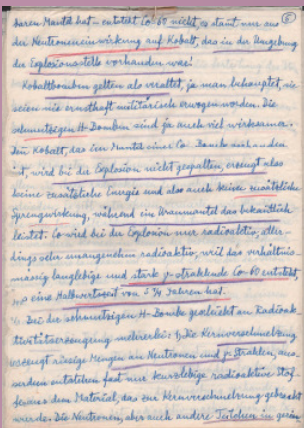 baren Mantel hat – entsteht Co-60 nicht, es stamt nur aus
der Neutroneneinwirkung auf Kobalt, das in der Umgebung
der Explosionsstelle vorhanden war!
Kobaltbomben gelten als veraltet, ja man behauptet, sie
seien nie ernsthaft militärisch erwogen worden. Die
schmutzigen H-Bomben sind ja auch viel wirksamer.
Den Kobalt, das im Mantel einer Co-Bombe vorhanden
ist, wird bei der Explosion nicht gespalten, erzeugt also
keine zusätzliche Energie und also auch keine zusätzliche
Sprengwirkung, während ein Uranmantel das bekanntlich
leistet. Co wird bei der Explosion nur radioaktiv, aller-
dings sehr unangenehm radioaktiv, weil das verhältnis-
mässig langlebige und stark γ-strahlende Co-60 entsteht,
eine Halbwertszeit von 5 ¼ Jahren hat.
Bei der schmutzigen H-Bombe geschieht an Radioak-
tivitätserzeugung mehrerlei: 1) Die Kernverschmelzung
erzeugt riesige Mengen an Neutronen und γ-Strahlen, aus-
serdem entstehen fast nur kurzlebige radioaktive Stof-
fe aus dem Material, das zur Kernverschmelzung gebracht
wurde. Die Neutronen, aber auch andere Teilchen in